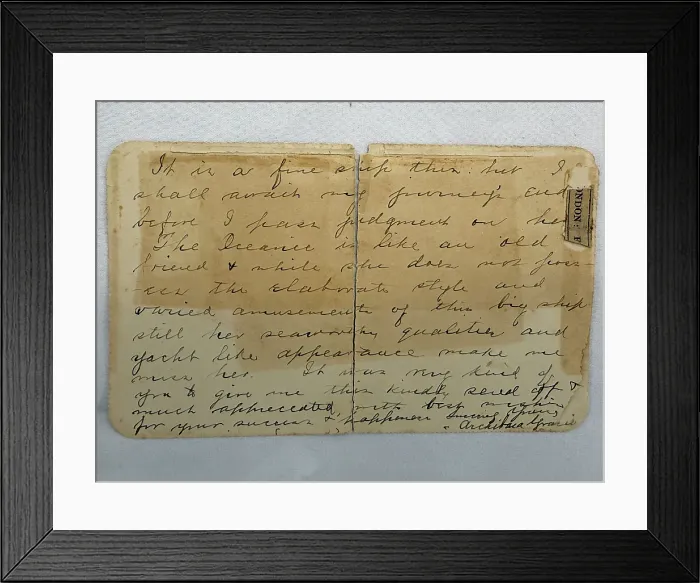 It is a fine ship this. but I
shall await my journey's end
before I pass judgment on her
The Oceanic is like an old
friend & while she does not poss-
-ess the elaborate style and
varied amusements of this big ship
still her seaworthy qualities and
yacht like appearance make me
miss her. It was very kind of
you to give me this kindly send off &
much appreciated, with best wishes
for your success & happiness Sincerely yours
Archibald Gracie
ONDON: F